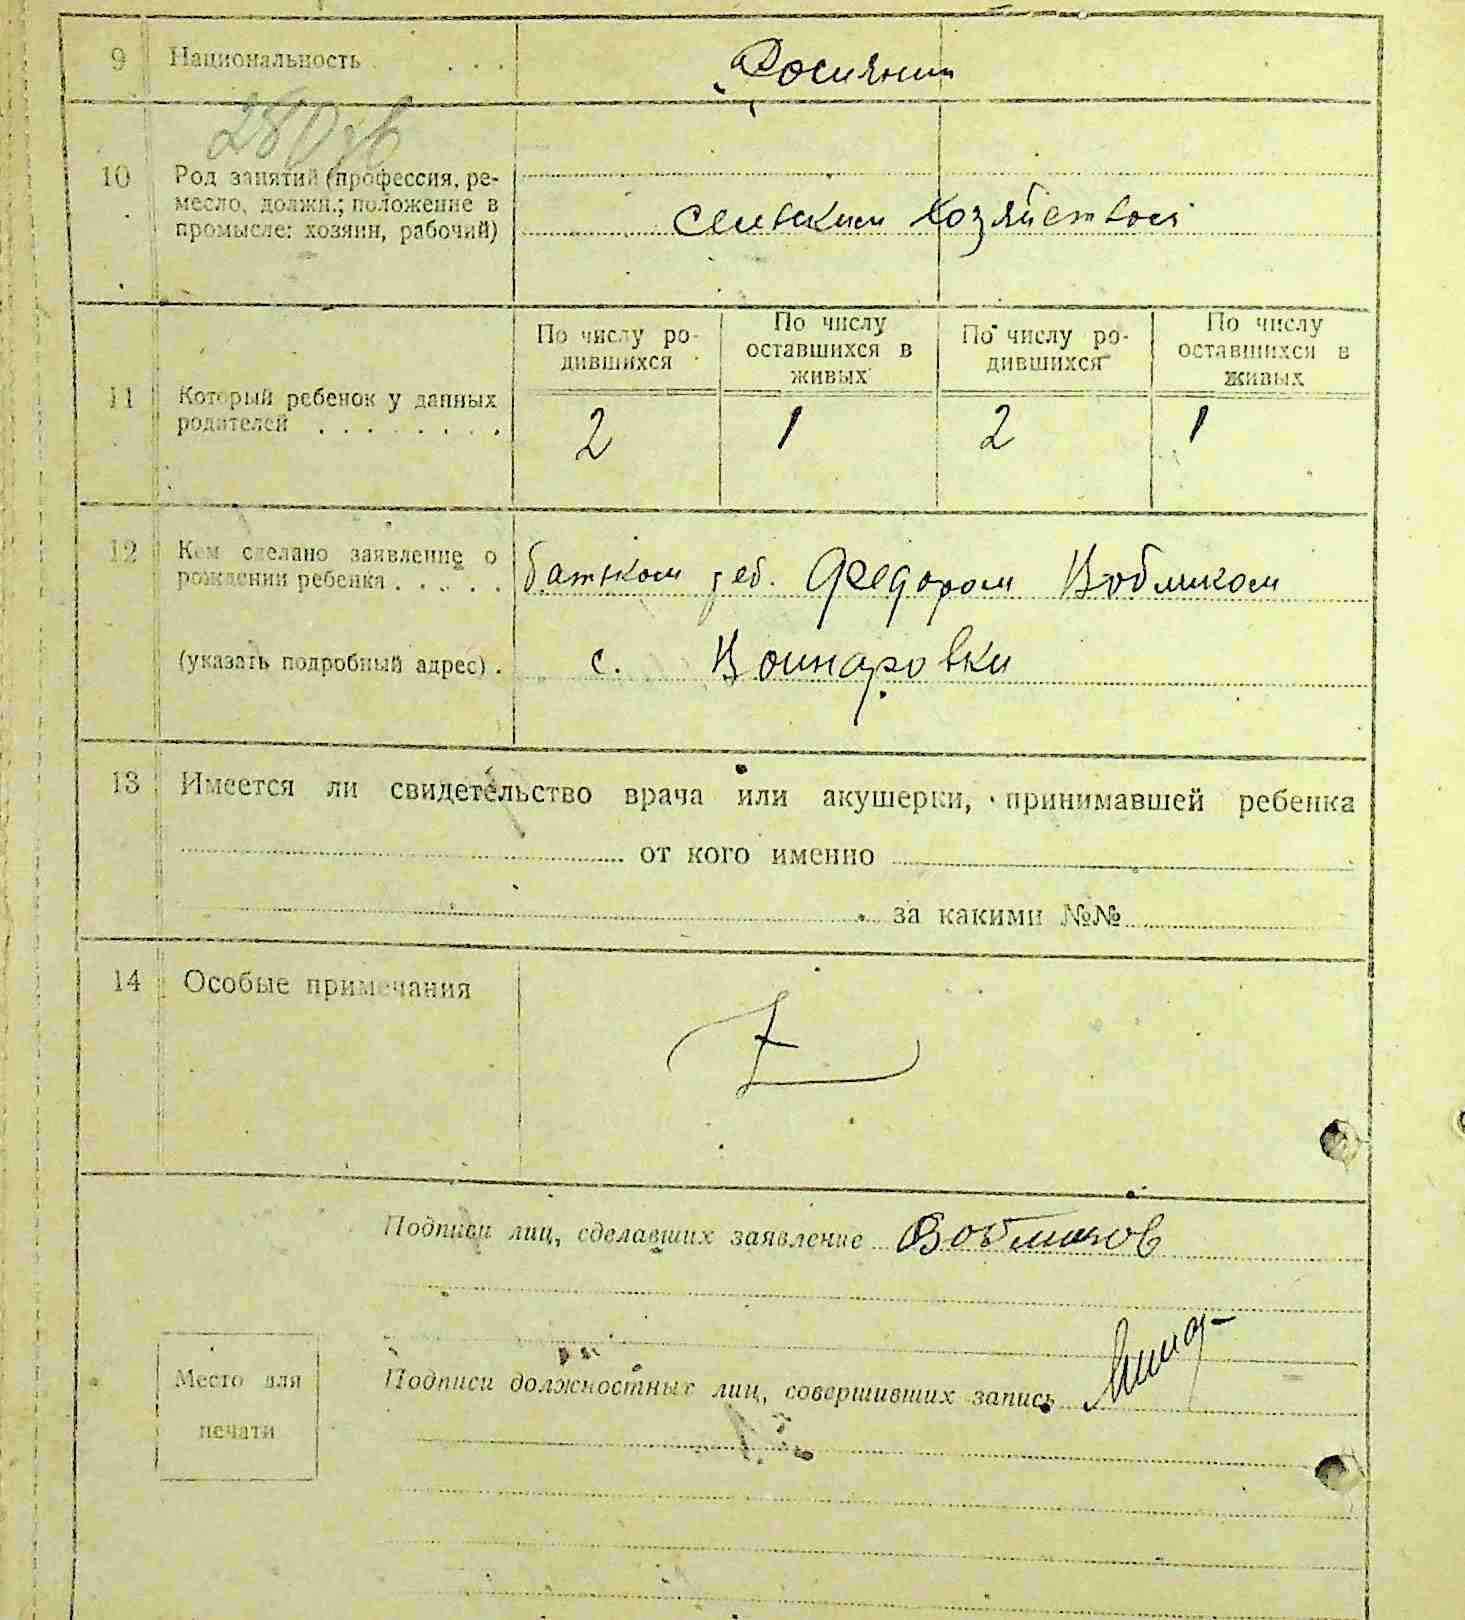 9 Национальность . . . Росиянин
10 Род занятий (профессия, ре-
месло, должн.; положение в
промысле: хозяин, рабочий)
сельским хозяйством
По числу ро-
дившихся
По числу
оставшихся в
живых
По числу ро-
дившихся
По числу
оставшихся в
живых
11 Который ребенок у данных
родителей . . . . . . . .
2 1 2 1
12 Кем сделано заявление о
рождении ребенка . . . . .
батьком Федором Вобликом
(указать подробный адрес) .
с. Воинаровки
13 Имеется ли свидетельство врача или акушерки, принимавшей ребенка
от кого именно
за какими №№
14 Особые примечания
Подписи лиц, сделавших заявление Вобликов
Подписи должностных лиц, совершивших запись
Место для
печати